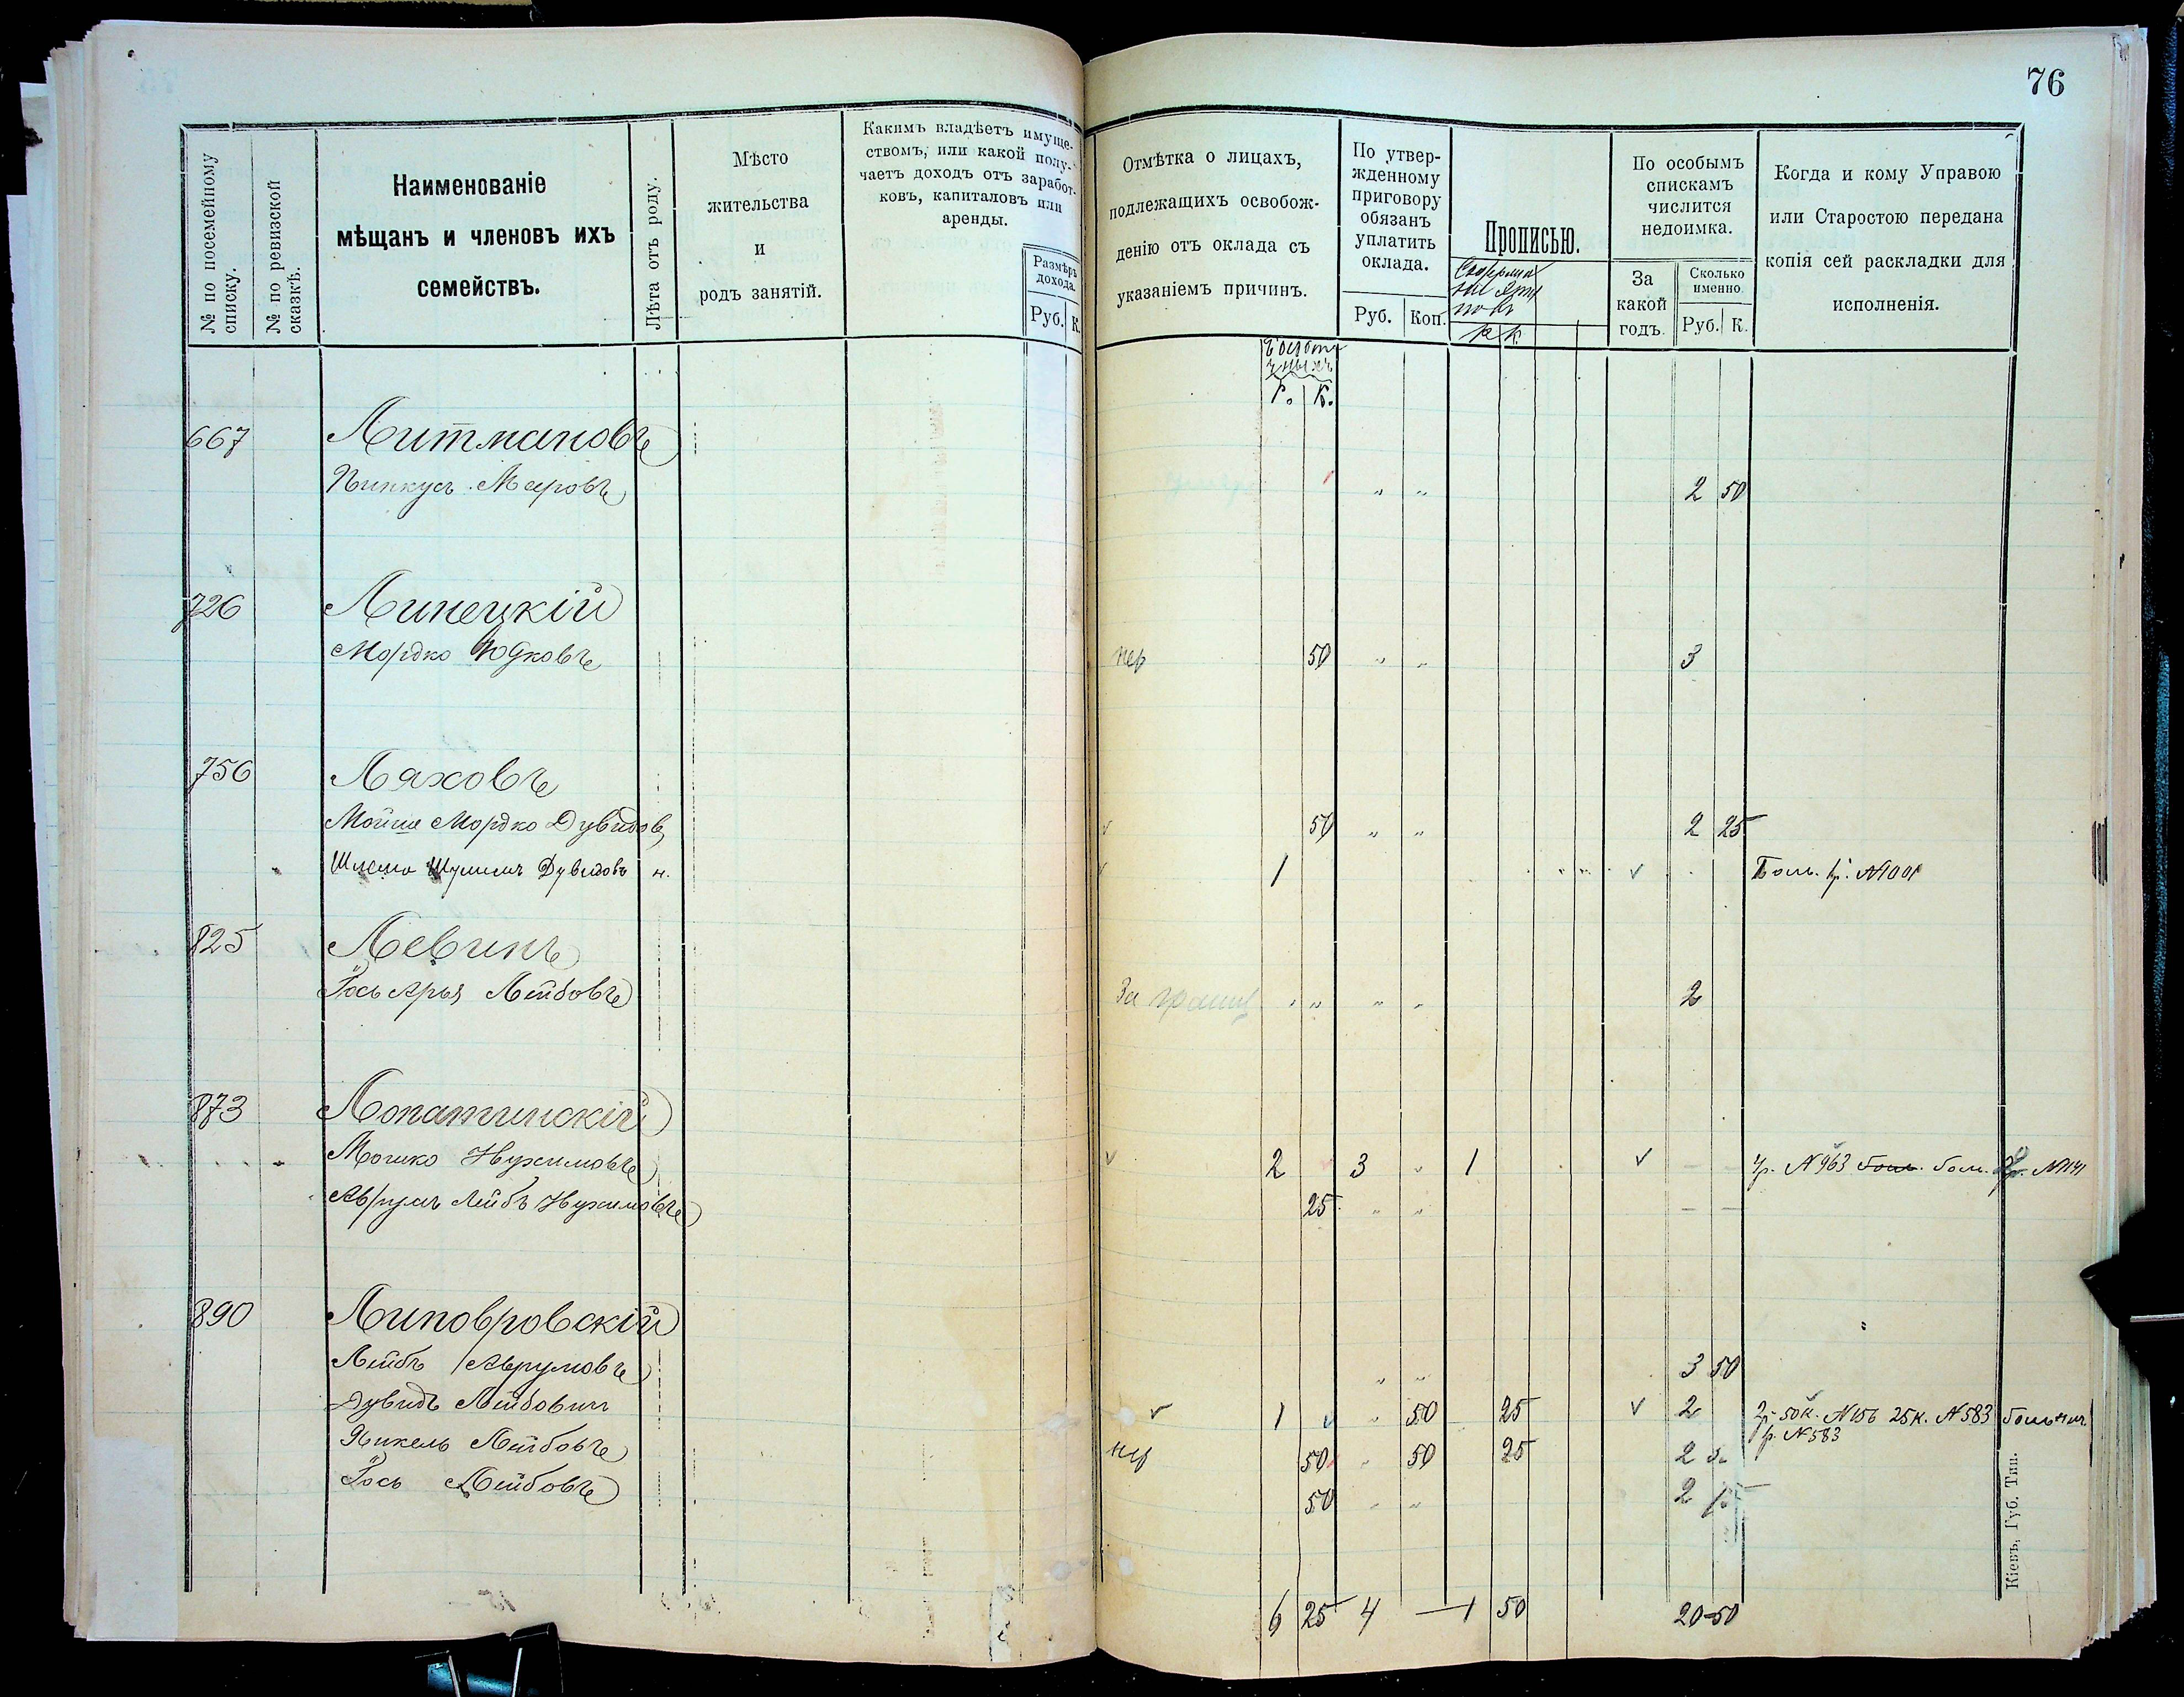 76
№ по посемейному списку.
№ по ревизской сказкѣ.
Наименованіе
мѣщанъ и членовъ ихъ
семействъ.
Лѣта отъ роду.
Мѣсто
жительства
и
родъ занятій.
Какимъ владѣетъ имуще-
ствомъ, или какой полу-
чаетъ доходъ отъ заработ-
ковъ, капиталовъ или
аренды.
Размѣръ
дохода.
Руб. К.
Отмѣтка о лицахъ,
подлежащихъ освобож-
денію отъ оклада съ
указаніемъ причинъ.
По утвер-
жденному
приговору
обязанъ
уплатить
оклада.
Руб. Коп.
Прописью.
По особымъ
спискамъ
числится
недоимка.
За
какой
годъ.
Сколько
именно.
Руб. К.
Когда и кому Управою
или Старостою передана
копія сей раскладки для
исполненія.
Р. К.
667 Литмановъ
Пинкусъ Меровъ " " 2 50
726 Липецкій
Мордко Юдковъ нер 50 " " 3
756 Ляховъ
Мойше Мордко Дувидов v 50 " " 2 25
Шлема Шулимъ Дувидовъ н. v 1 v Боль. р. №1001
825 Левинъ
Іось Арья Лейбовъ За границ " " " " 2
873 Лопатинскій
Мошко Нухимовъ v 2 v 3 " 1 v 3р. №963 боль. боль.
Аврумъ Лейбъ Нухимовъ 25 " " — —
890 Липовровскій
Лейбъ Аврумовъ " " 3 50
Дувидъ Лейбовъ v 1 v " 50 25 v 2 50к. №156 25к. №583 больнич
р. №583
Янкель Лейбовъ нер 50 " 50 25 2
Іось Лейбовъ 50 " " 2
6 25 4 — 1 50 20-50
Кіевъ, Губ. Тип.